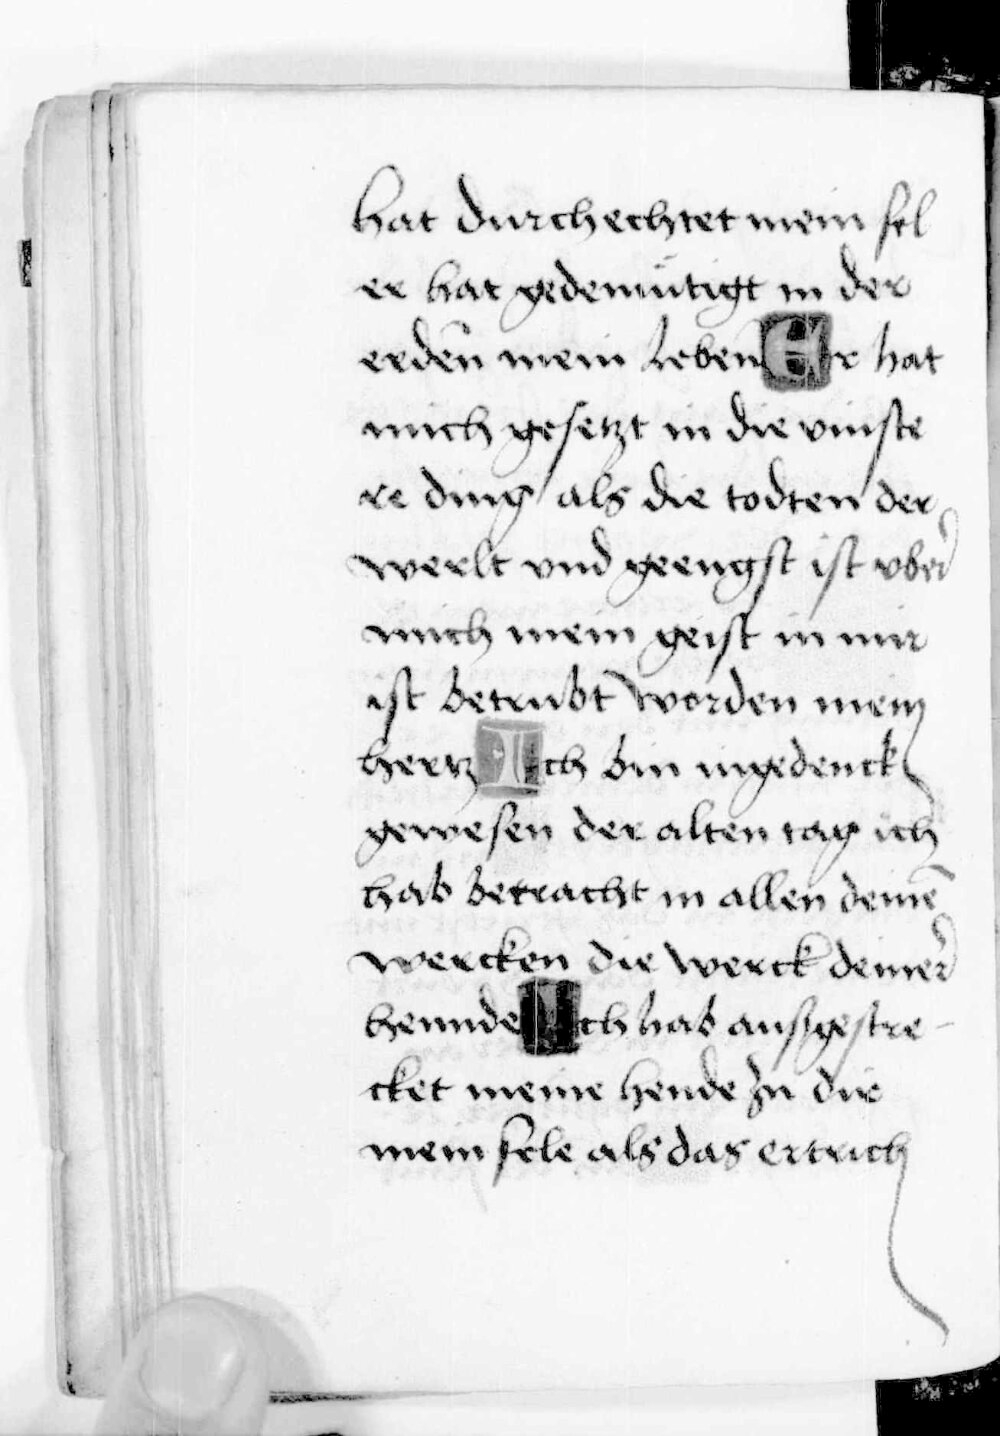 hat durchechtet mein sel
er hat gedemütigt in der
erdeñ mein leben Er hat
mich gesetzt in die vinste
re ding als die todten der
werlt vnd geengst ist vber
mich mein geist in mir
ist betrubt worden mein
hertz Ich bin ingedenck
gewesen der alten tag ich
hab betracht in allen deinē
wercken die werck deiner
hennde Ich hab außgestre-
cket meine hende zu dir
mein sele als das ertrich